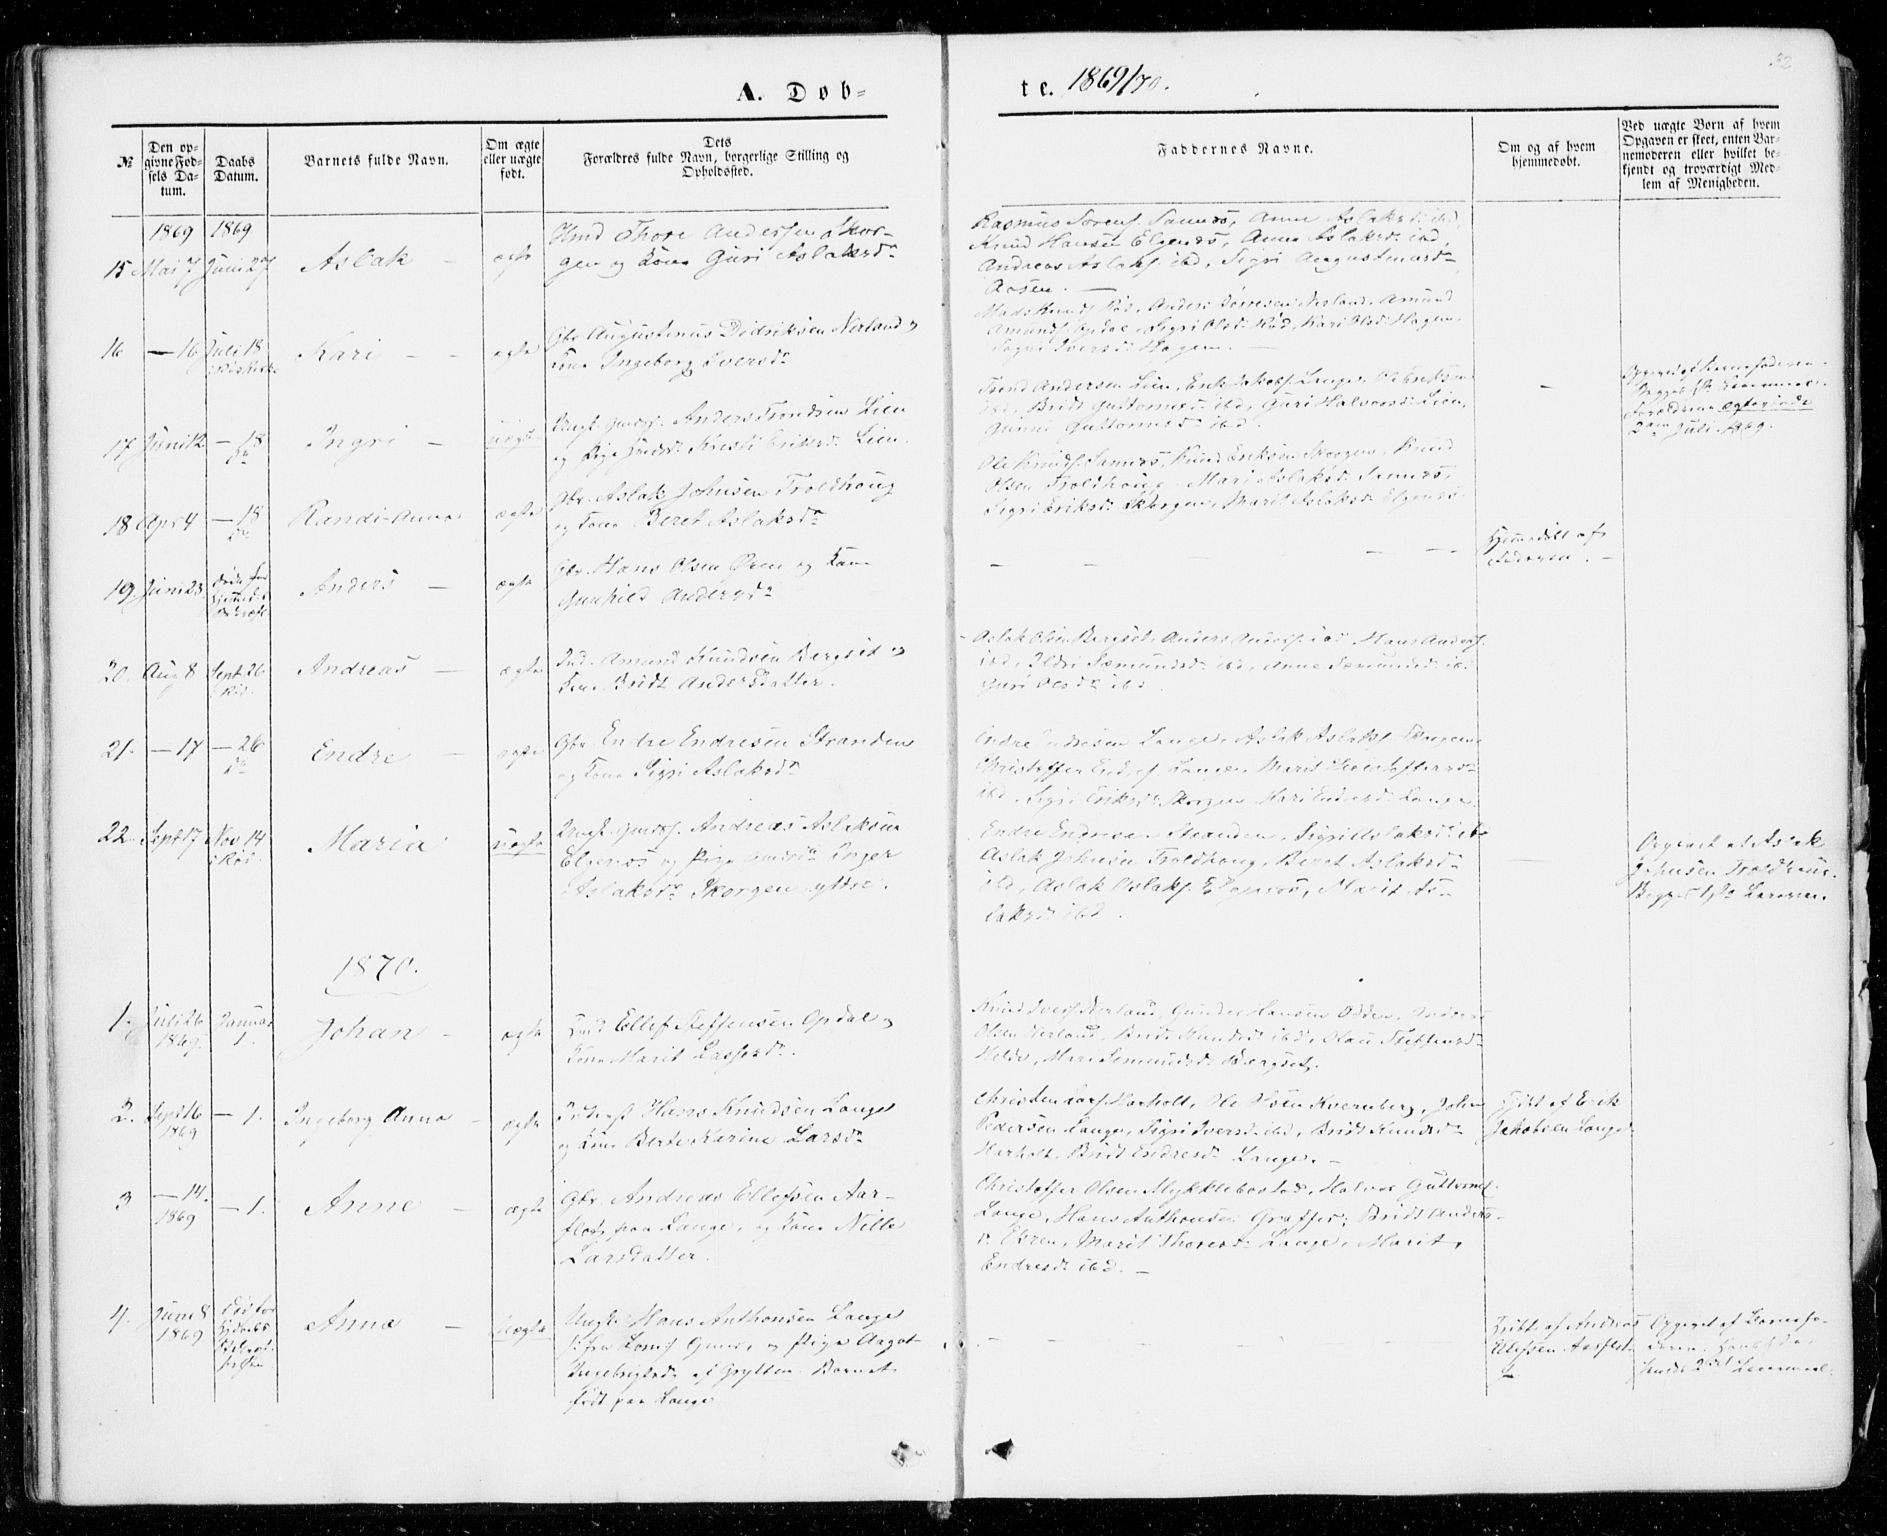 32
A. Døb-
te. 1869/70.
№
Den op-
givne Fød-
sels Da-
tum.
Daabs
Datum.
Barnets fulde Navn.
Om ægte
eller uægte
født.
Dets
Forældres fulde Navn, borgerlige Stilling og
Opholdssted.
Faddernes Navne.
Om og af hvem
hjemmedøbt.
Ved uægte Børn af hvem
Opgaven er skeet, enten Bar-
nemoderen eller hvilket be-
kjendt og troværdigt Med-
lem af Menigheden.
1869 1869
15 Mai 7 Juni 27 Aslak — ægte
Hmd Thore Andersen Skor-
gen og Kone Guri Aslaksdr
Rasmus Sørens. Sannes, Anne Aslaksd: ibd,
Knud Hansen Elgenes, Anne Aslaksd: ibd,
Andreas Aslaks. ibd, Sigri Augustinusdr
Aasen. —
16 — 16 Juli 18 Kari — — ægte
Gbr Augustinus Didriksen Nerland og
Kone Ingeborg Iversdr
Mads Knuds. Rød, Anders Nerland, Amund
Amunds. Opdal, Sigri Olsd: Rød, Kari Olsd: Hagen,
Iversd: Hagen. —
17 Juni 12 — 18 Ingri — uægte
Ungk. Anders Trondsen Lien
og Pige Kristi Eriksd: Lien.
Trond Andersen Lien, Erik Jakobs. Lange, Ole Eriksen
ibd, Bridt Guttormsd: ibd, Guri Halvorsd: Lien,
Gunni Guttormsd: ibd.
—
Opgivet af Barnefaderen.
Begges 1ste Leiermaal.
Forældrene egteviede
2den Juli 1869.
18 Apr 4 — 18 Randi-Anna ægte
Gbr. Aslak Johnsen Troldhoug
og Kone Beret Aslaksdr
Ole Knuds. Sannes, Knud Eriksen Skorgen, Knud
Olsen Troldhoug, Mari Aslaksd: Sannes,
Sigri Eriksd: Skorgen, Marit Aslaksd: Elgenes.
19 Juni 23 Anders — ægte
Gbr. Hans Olsen Øren og Kone
Gunhild Andersdr
— — — —
Hjemmedøbt af
Faderen. —
20. Aug 8 Sept 26 Andreas — ægte
Ind. Amund Knudsen Bergset og
Kone Bridt Andersdatter.
Aslak Olsen Bergset, Anders Anders. ibd, Hans Anders.
ibd, Ildri Sæmundsd: ibd, Anne Sæmundsd: ibd
Guri Olsdr ibd.
21. — 17 — 26 Endre — ægte
Gbr. Endre Endresen Stranden
og Kone Sigri Aslaksdr
Endre Endresen Lange, Aslak Aslaks. Skorgen
Christoffer Lange, Marit Christoffersd:
ibd, Sigri Eriksd: Skorgen, Mari Endresd: Lange.
22. Sept 17 Nov 14 Maria uægte
Ungk. Andreas Aslaksen
Elgenes og Pige Inger
Aslaksdr Skorgen yttre.
Endre Endresen Stranden, Sigri Aslaksd: ibd
Aslak Johnsen Troldhoug, Beret Aslaksd:
ibd, Aslak Aslaks. Elgenes, Marit As-
laksd: ibd.
—
Opgivet af Aslak
Johnsen Troldhoug.
Begges 1ste Leierm.
1870.
1. Juli 26 1869. Januar 1. Johan — ægte
Hmd Ellef Steffensen Opdal og
Kone Marit Lassesdr.
Knud Ivers. Nerland, Gunder Hansen Odden, Anders
Olsen Nerland, Bridt Knudsd: ibd, Steffensd:
Helde, Mari Semundsd: Bergset.
2. Sept 16 1869 — 1. Ingeborg Anna — ægte
Hans Knudsen Lange
og Kone Berte Karine Larsdr
Christen Lars. Harholt, Ole Olsen Kvernberg, John
Pedersen Lange, Sigri Iversd: ibd, Bridt Knudsd:
Harholt, Bridt Endresdr Lange. —
Hjdbt af Erik
Jakobsen Lange
3 — 14. 1869 — 1. Anne — ægte
Gbr. Andreas Ellefsen Aar-
flot, paa Lange, og Kone Nille
Larsdatter.
Christoffer Olsen Myklebostad, Halvor Guttorms.
Lange, Hans Anthonsen Graffer, Bridt Anders-
d: Øren, Marit Thoresd: Lange, Marit
Endresd: ibd. —
4. Juni 8 1869 Anne — uægte
Ungk: Hans Anthonsen Lange
fra Lom og Pige Aagot
Ingebrigtsd: af Grytten. Barnet
født paa Lange
— — — —
Hjdbt af Andreas
Ellefsen Aarflot
Opgivet af Barnefa-
deren. Hans 1ste,
hendes 2det Leiermaal.